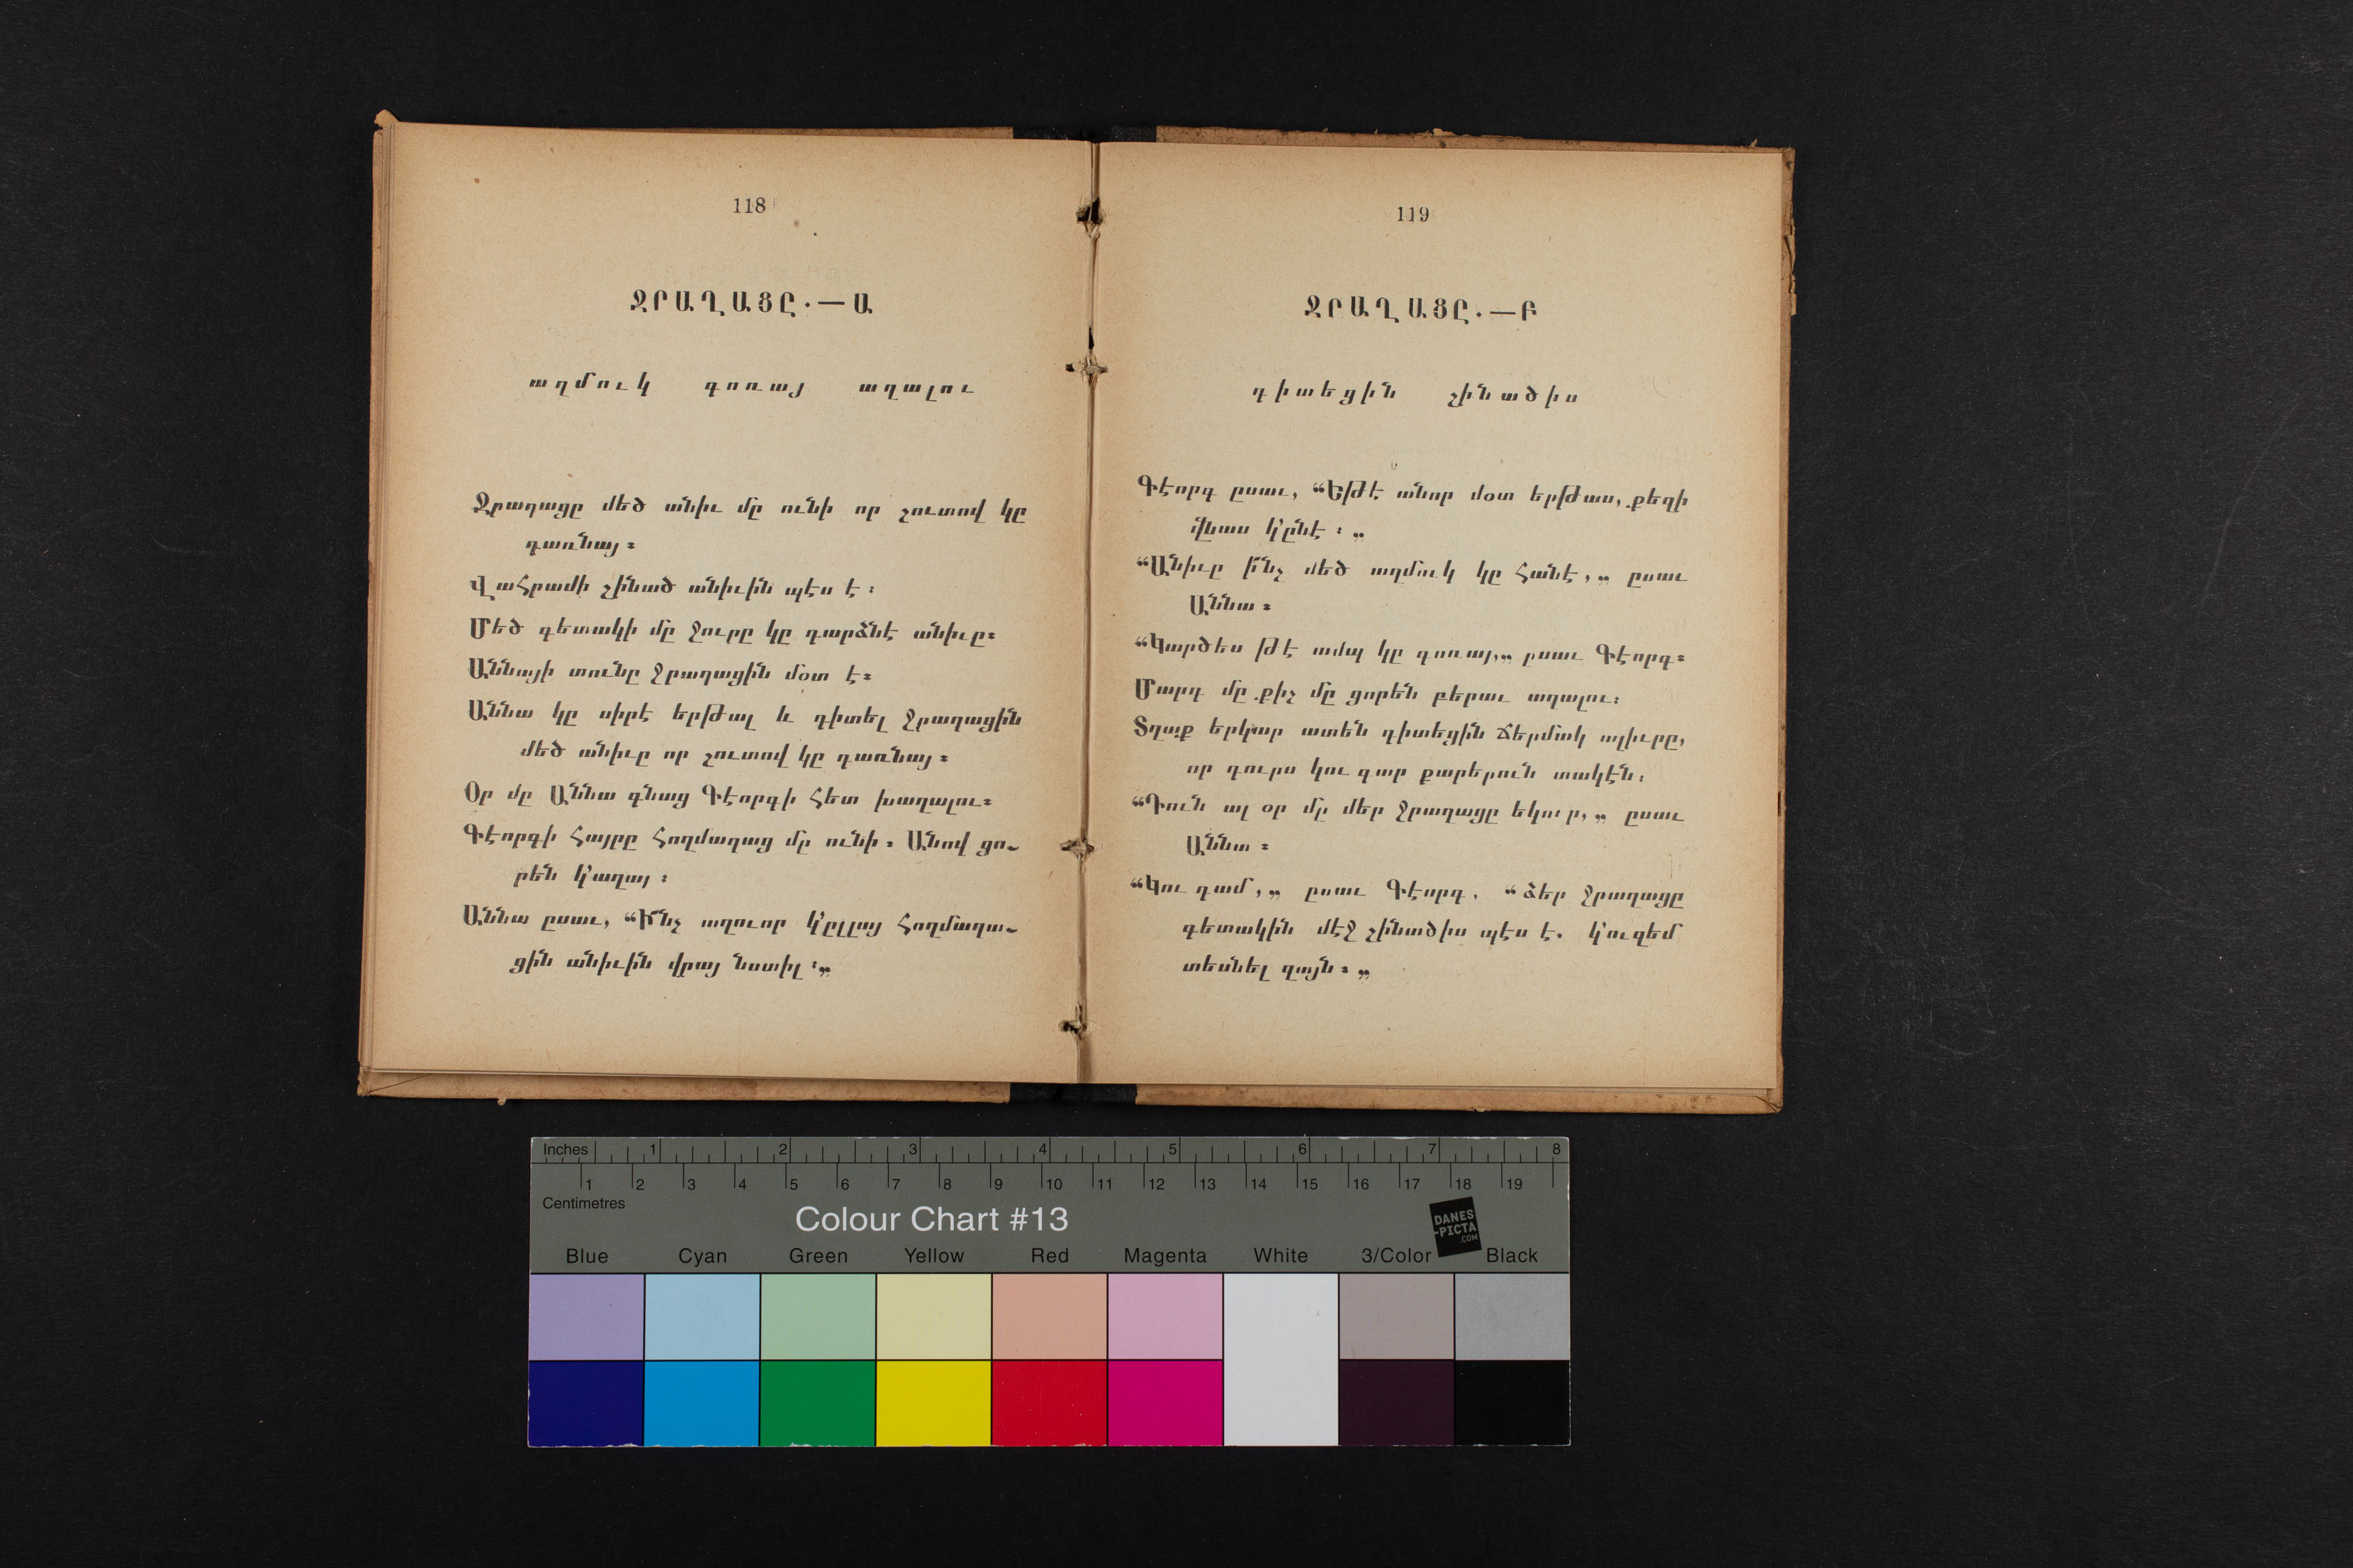 118
ՋՐԱՂԱՑԸ.—Ա
աղմուկ գոռայ աղալու
Ջրաղացը մեծ անիւ մը ունի որ շուտով կը
դառնայ։
Վահրամի շինած անիւին պէս է։
Մեծ գետակի մը ջուրը կը դարձնէ անիւը։
Աննայի տունը ջրաղացին մօտ է։
Աննա կը սիրէ երթալ և դիտել ջրաղացին
մեծ անիւը որ շուտով կը դառնայ։
Օր մը Աննա գնաց Գէորգի հետ խաղալու։
Գէորգի հայրը հողմաղաց մը ունի։ Անով ցո֊
րեն կ՚աղայ։
Աննա ըսաւ, “Ի՜նչ աղուոր կ՚ըլլայ հողմաղա֊
ցին անիւին վրայ նստիլ։„
119
ՋՐԱՂԱՑԸ.—Բ
դիտեցին շինածիս
Գէորգ ըսաւ, “Եթէ անոր մօտ երթաս, քեզի
վնաս կ՚ընէ։„
“Անիւը ի՜նչ մեծ աղմուկ կը հանէ,„ ըսաւ
Աննա։
“Կարծես թէ ամպ կը գոռայ,„ ըսաւ Գէորգ։
Մարդ մը քիչ մը ցորեն բերաւ աղալու։
Տղաք երկար ատեն դիտեցին ճերմակ ալիւրը,
որ դուրս կու գար քարերուն տակէն։
“Դուն ալ օր մը մեր ջրաղացը եկուր,„ ըսաւ
Աննա։
“Կու գամ,„ ըսաւ Գէորգ. “ձեր ջրաղացը
գետակին մէջ շինածիս պէս է. կ՚ուզեմ
տեսնել զայն։„
Inches 1 2 3 4 5 6 7 8
1 2 3 4 5 6 7 8 9 10 11 12 13 14 15 16 17 18 19
Centimetres
Colour Chart #13
DANES
-PICTA
.COM
Blue Cyan Green Yellow Red Magenta White 3/Color Black